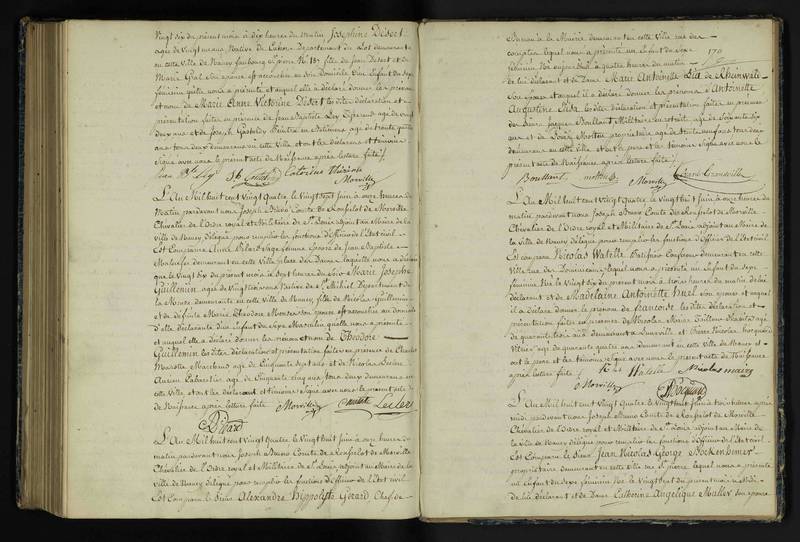 Vingt six du présent mois à dix heures du matin, Josephine Désert
agée de vingt neuf ans Native de Cahors Département du Lot demeurante
en cette Ville de Nancy faubourg St pierre No. 187 fille de Jean Désert et de
Marie Gral son épouse est accouchée en son domicile d'un Enfant du sexe
féminin qu'elle nous a présenté et auquel elle a déclaré donner les prénoms
et nom de Marie Anne Victorine Désert les dites déclaration et
présentation faites en présence de Jean Baptiste Rey agé de vingt
deux ans et de Joseph Peintre en Bâtimens agé de trente quatre
ans tous deux demeurans en cette ville et ont les déclarante et témoins
signé avec nous le présent acte de Naissance après lecture faite /.
Morville
L'An Mil huit cent Vingt Quatre, le Vingt sept Juin à onze heures du
Matin pardevant nous Joseph Bruno Comte de Ronfilot de Morville
Chevalier de l'Ordre royal et Militaire de St. Louis adjoint au Maire de la
Ville de Nancy délégué pour remplir les fonctions d'Officier de l'Etat civil
Est Comparue Pikard sage femme Epouse de Jean Baptiste
demeurante en cette Ville place des Dames laquelle nous a déclaré
que le Vingt Six du présent mois à sept heures du soir Marie Josephe
Guillemin agée de Vingt trois ans Native de St. Mihiel Département de
la Meuse demeurante en cette Ville de Nancy, fille de Nicolas Guillemin
et de défunte Marie Theodore son épouse est accouchée au domicile
d'elle déclarante d'un Enfant du Sexe Masculin qu'elle nous a présenté
et auquel elle a déclaré donner les prénom et nom de Theodore
Guillemin les dites déclaration et présentation faites en présence de Charles
Marchand agé de Cinquante sept ans et de Nicolas Leclerc
Ancien Laboureur agé de Cinquante cinq ans tous deux demeurans en
cette Ville et ont les déclarante et témoins signé avec nous le présent acte
de Naissance après lecture faite Morville Leclerc
L'An Mil huit cent Vingt Quatre le Vingt huit Juin à onze heures du
matin pardevant nous Joseph Bruno Comte de Ronfilot de Morville
Chevalier de l'Ordre royal et Militaire de St. Louis adjoint au Maire de la
Ville de Nancy délégué pour remplir les fonctions d'Officier de l'Etat civil
Est Comparu le Sieur Alexandre Hippolyte Gérard Chef de
Bureau à la Mairie demeurant en cette Ville rue des
comptes lequel nous a présenté un Enfant du Sexe
féminin Né aujourd'hui à quatre heures du matin
170
de lui déclarant et de Dame Marie Antoinette Lia de Rheinwald
Son épouse et auquel il a déclaré donner les prénoms d'Antoinette
Augustine Elisa les dites déclaration et présentation faites en présence
des Sieurs Jacques Boullant Militaire en retraite agé de Soixante six
ans et de Louis propriétaire agé de trente neuf ans tous deux
demeurans en cette ville et ont le père et les témoins signé avec nous le
présent acte de Naissance après lecture faite /.
Boullant Morville
L'An Mil huit cent Vingt Quatre, le Vingt huit Juin à onze heures du
matin pardevant nous Joseph Bruno Comte de Ronfilot de Morville
Chevalier de l'Ordre royal et Militaire de St. Louis adjoint au Maire de
la Ville de Nancy délégué pour remplir les fonctions d'Officier de l'Etat civil
Est comparu Nicolas Watelle demeurant en cette
Ville Rue des lequel nous a présenté un Enfant du sexe
féminin Né le Vingt Six du présent mois à trois heures du matin de lui
déclarant et de Madelaine Antoinette Huel Son épouse et auquel
il a déclaré donner le prénom de françoise les dites déclaration et
présentation faites en présence de Nicolas Mairy Tailleur d'habits agé
de quarante trois ans demeurant à Lunéville et Pierre Nicolas
Vitrier agé de quarante quatre ans demeurant en cette Ville de Nancy et
ont le père et les témoins signé avec nous le présent acte de Naissance
après lecture faite /. Watelle Nicolas mairy
Morville
L'An Mil huit cent Vingt Quatre le Vingt huit Juin à trois heures après
midi pardevant nous Joseph Bruno Comte de Ronfilot de Morville
Chevalier de l'Ordre royal et Militaire de St. Louis adjoint au Maire de
la Ville de Nancy délégué pour remplir les fonctions d'Officier de l'Etat civil
Est Comparu le Sieur Jean Nicolas George Bockenheimer
propriétaire demeurant en cette Ville rue St. pierre, lequel nous a présenté
un Enfant du Sexe féminin Né le Vingt sept du présent mois à Midi
de lui déclarant et de Dame Catherine Angelique Maller son épouse